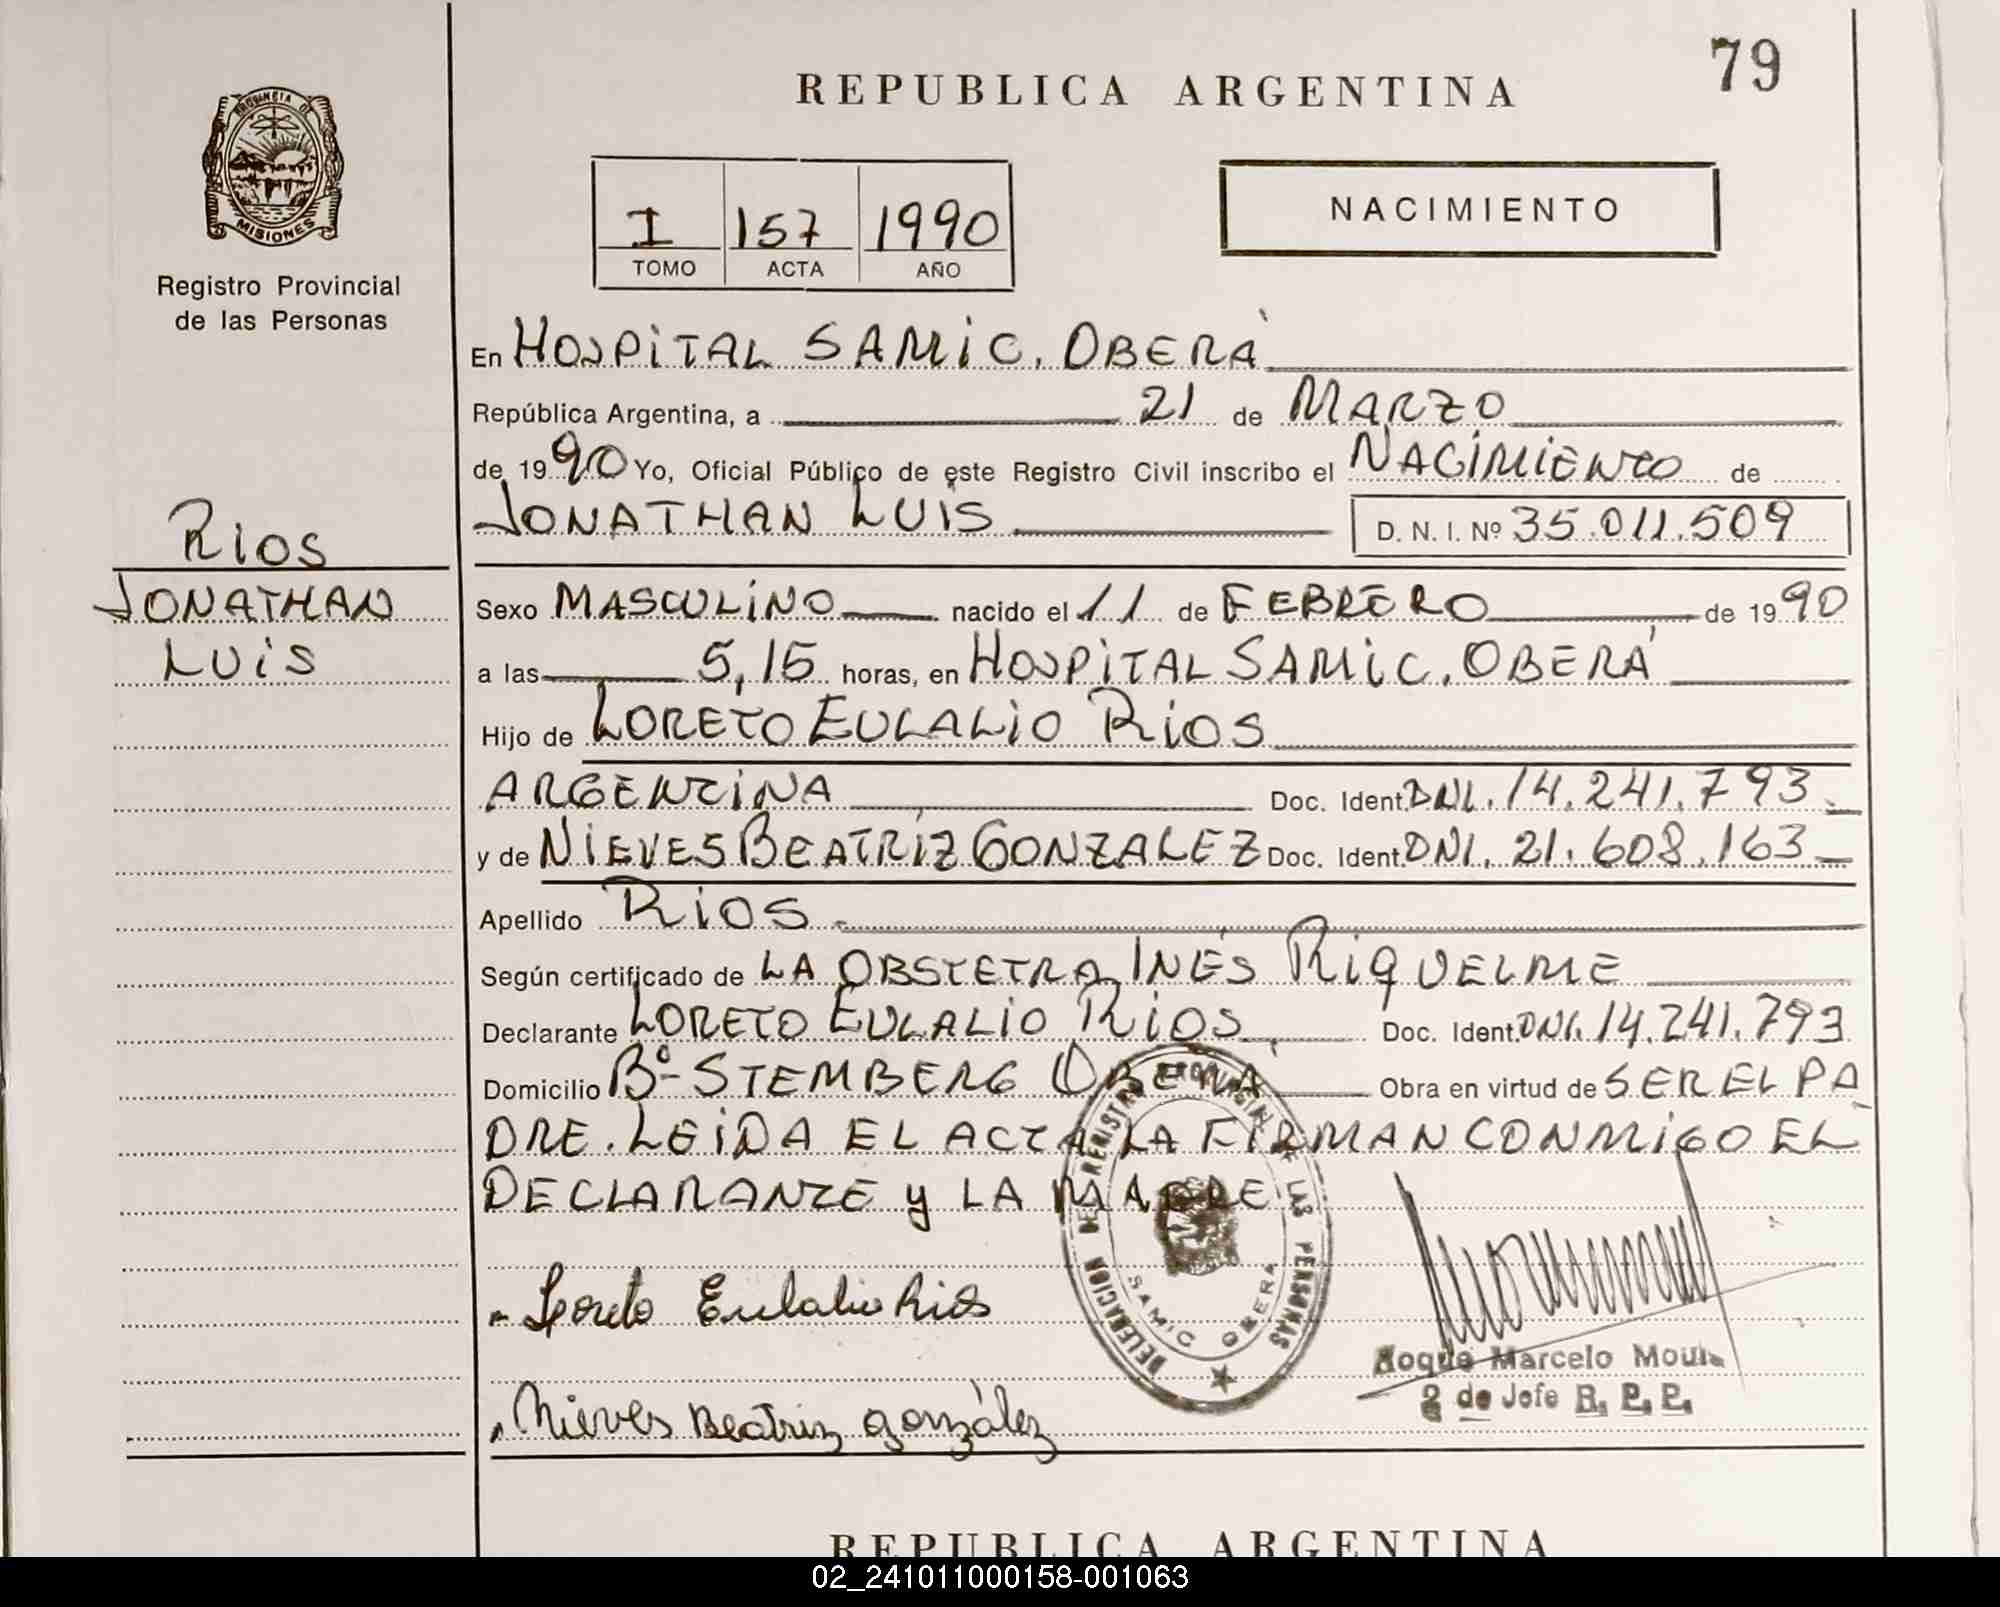 79
REPUBLICA ARGENTINA
PROVINCIA DE
MISIONES
Registro Provincial
de las Personas
I 157 1990
TOMO ACTA AÑO
NACIMIENTO
En HOSPITAL SAMIC. OBERÁ
República Argentina, a 21 de MARZO
de 1990 Yo, Oficial Público de este Registro Civil inscribo el NACIMIENTO de
JONATHAN LUIS D. N. I. Nº 35.011.509
RIOS
JONATHAN
LUIS
Sexo MASCULINO nacido el 11 de FEBRERO de 1990
a las 5,15 horas, en HOSPITAL SAMIC. OBERÁ
Hijo de LORETO EULALIO RIOS
ARGENTINA Doc. Ident. DNI. 14.241.793
y de NIEVES BEATRIZ GONZALEZ Doc. Ident. DNI. 21.608.163
Apellido RIOS
Según certificado de LA OBSTETRA INÉS RIQUELME
Declarante LORETO EULALIO RIOS Doc. Ident. DNI. 14.241.793
Domicilio Bº STEMBERG OBERÁ Obra en virtud de SER EL PA
DRE. LEIDA EL ACTA LA FIRMAN CONMIGO EL
DECLARANTE y LA MADRE
Loreto Eulalio Rios
DELEGACION DEL REGISTRO PROVINCIAL DE LAS PERSONAS
SAMIC OBERA
Roque Marcelo
2 do Jefe R. P. P.
Nieves Beatriz González
REPUBLICA ARGENTINA
02_241011000158-001063